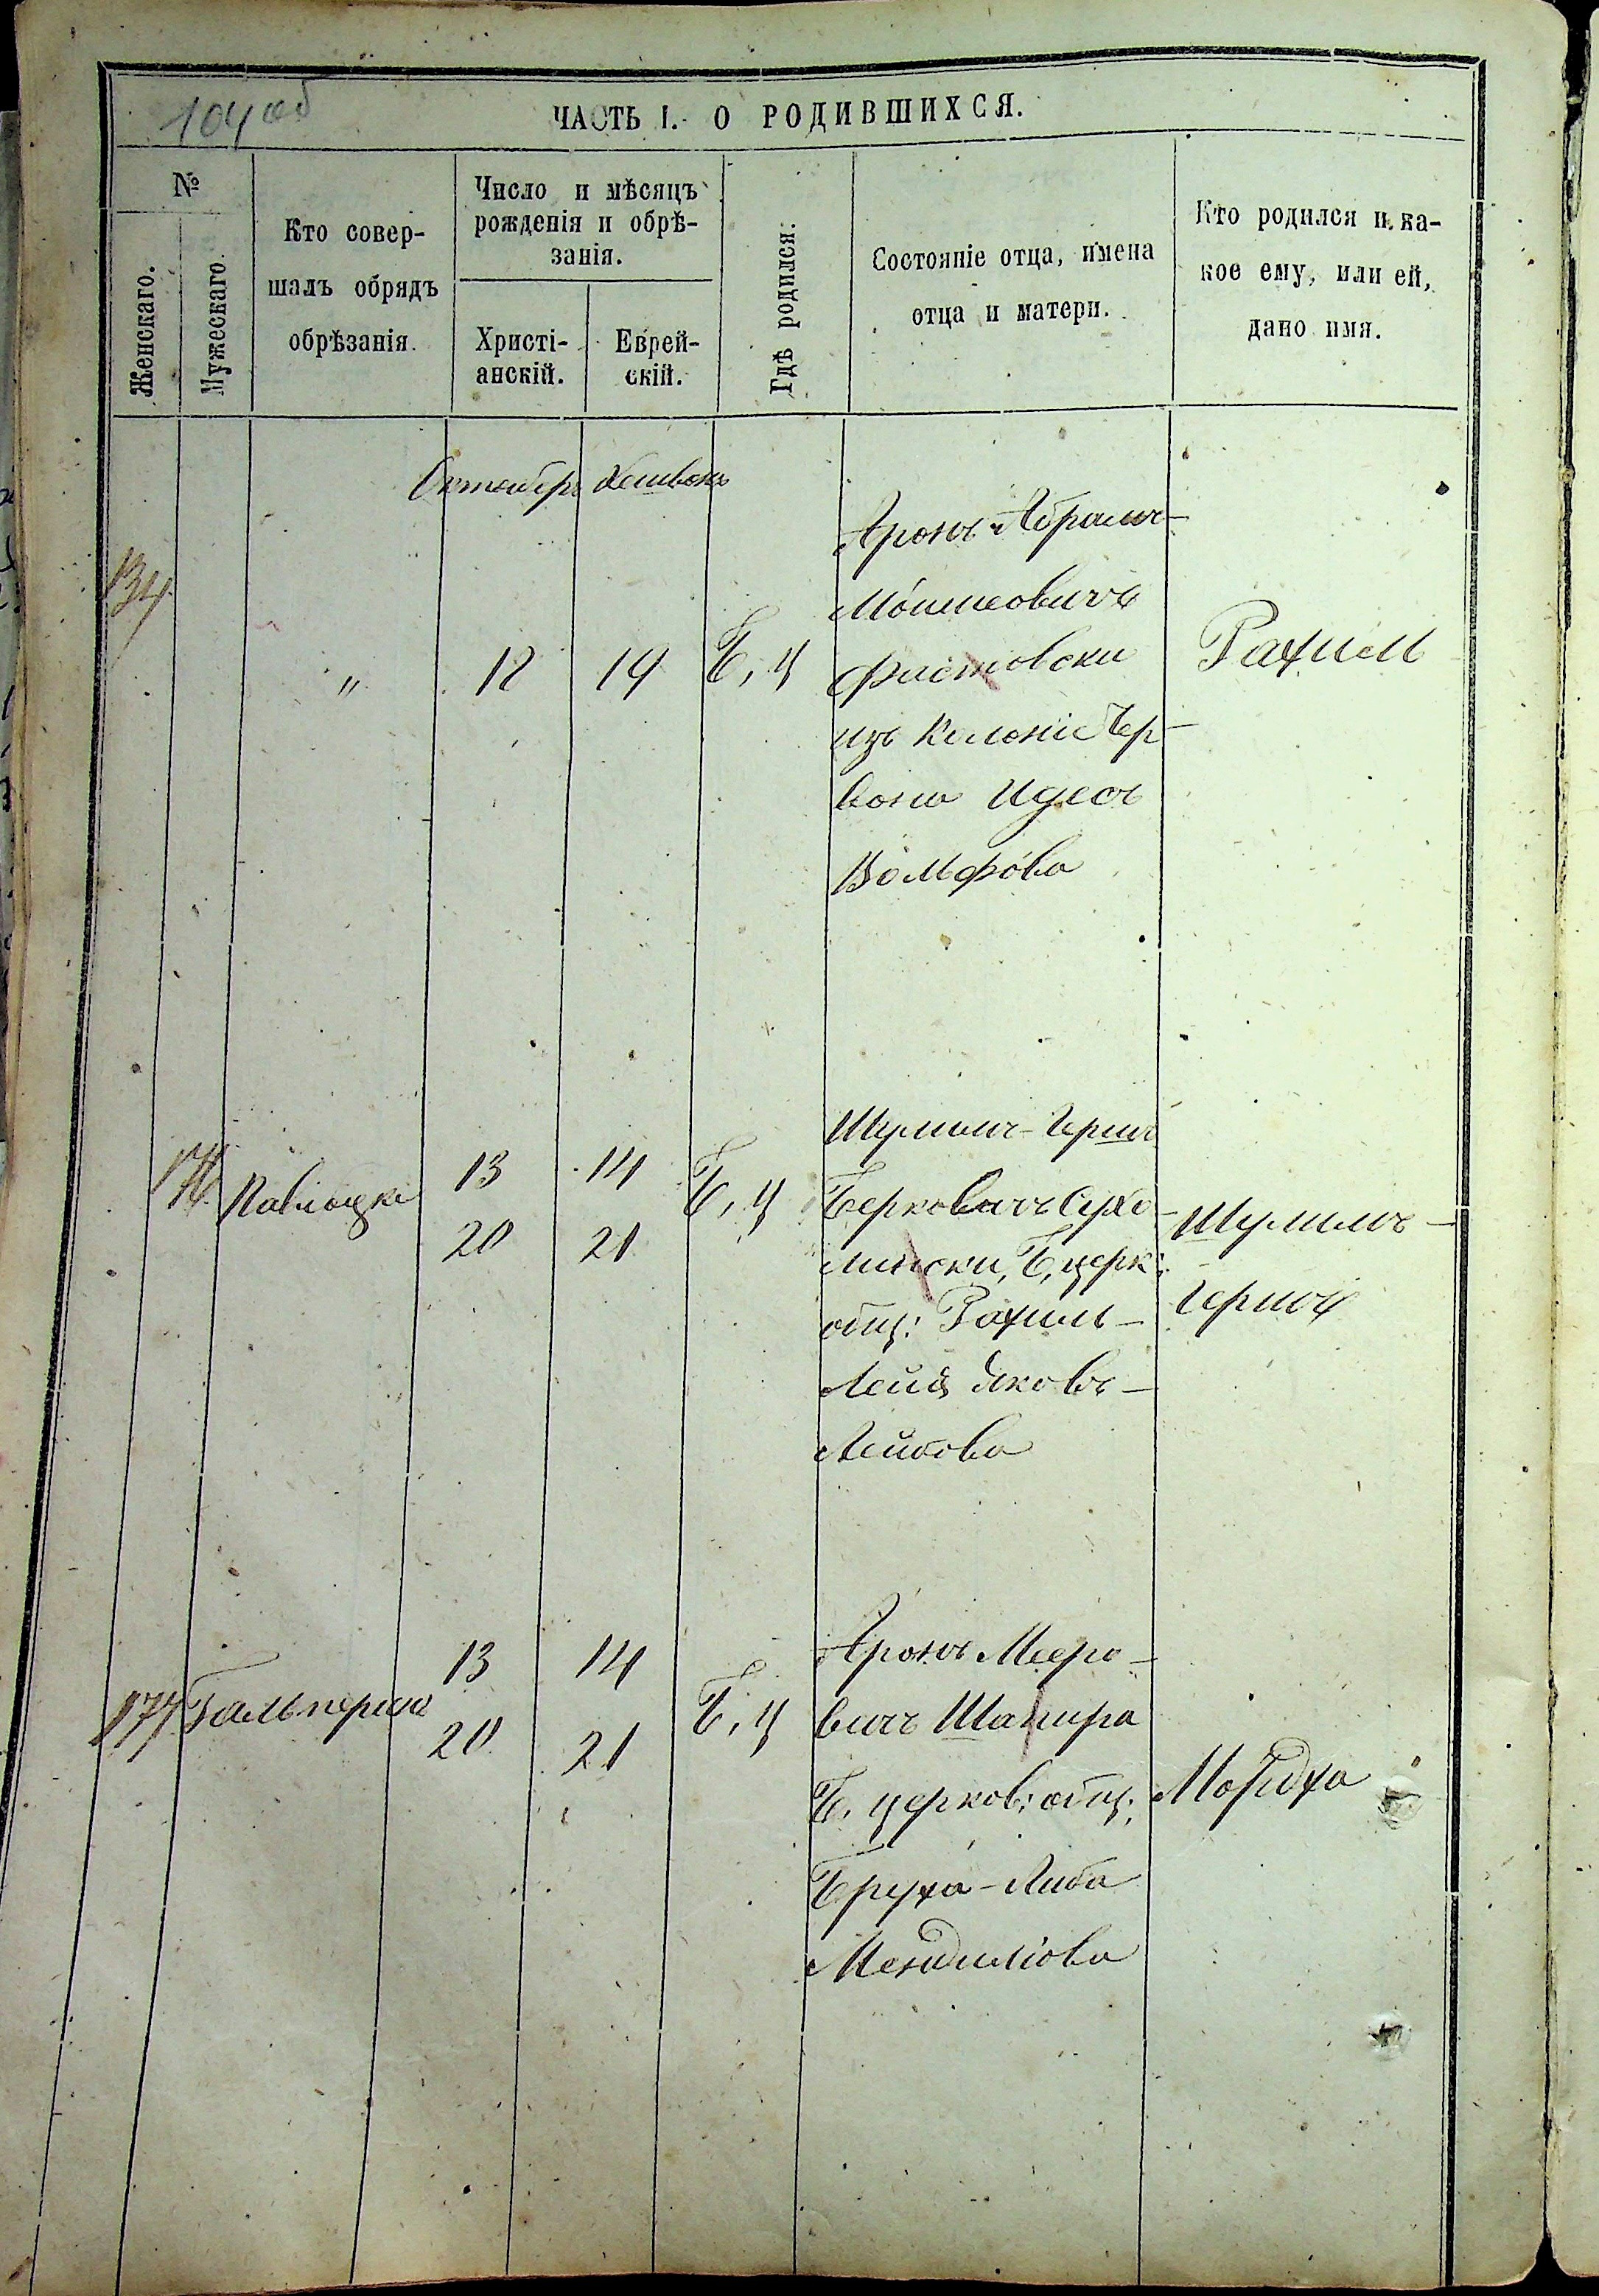 104 об
ЧАСТЬ I. О РОДИВШИХСЯ.
№
Женскаго.
Мужескаго.
Кто совер-
шалъ обрядъ
обрѣзанія.
Число и мѣсяцъ
рожденія и обрѣ-
занія.
Христі-
анскій.
Еврей-
скій.
Гдѣ родился.
Состояніе отца, имена
отца и матери.
Кто родился и ка-
кое ему, или ей,
дано имя.
Октембръ Хешвонъ
134
"
12
Б, Ц
Аронъ Абрамъ-
Мошковичъ
Фастовски
изъ Колоніе Чер-
вона Идесъ
Вольфова
Рахиль
176
Павлоцки
13
14
20
21
Б, Ц
Шулимъ-Гершъ
Берковичъ Сухо-
лински, Б, церк:
общ: Рахиль-
Лейя Яковъ-
Лейбова
Шулимъ-
Гершъ
177
Гальперинъ
13
14
20
21
Б, Ц
Аронъ Мееро-
вичъ Шапира
Б. церков: общ:
Бруха-Либа
Мендиліова
Мордха